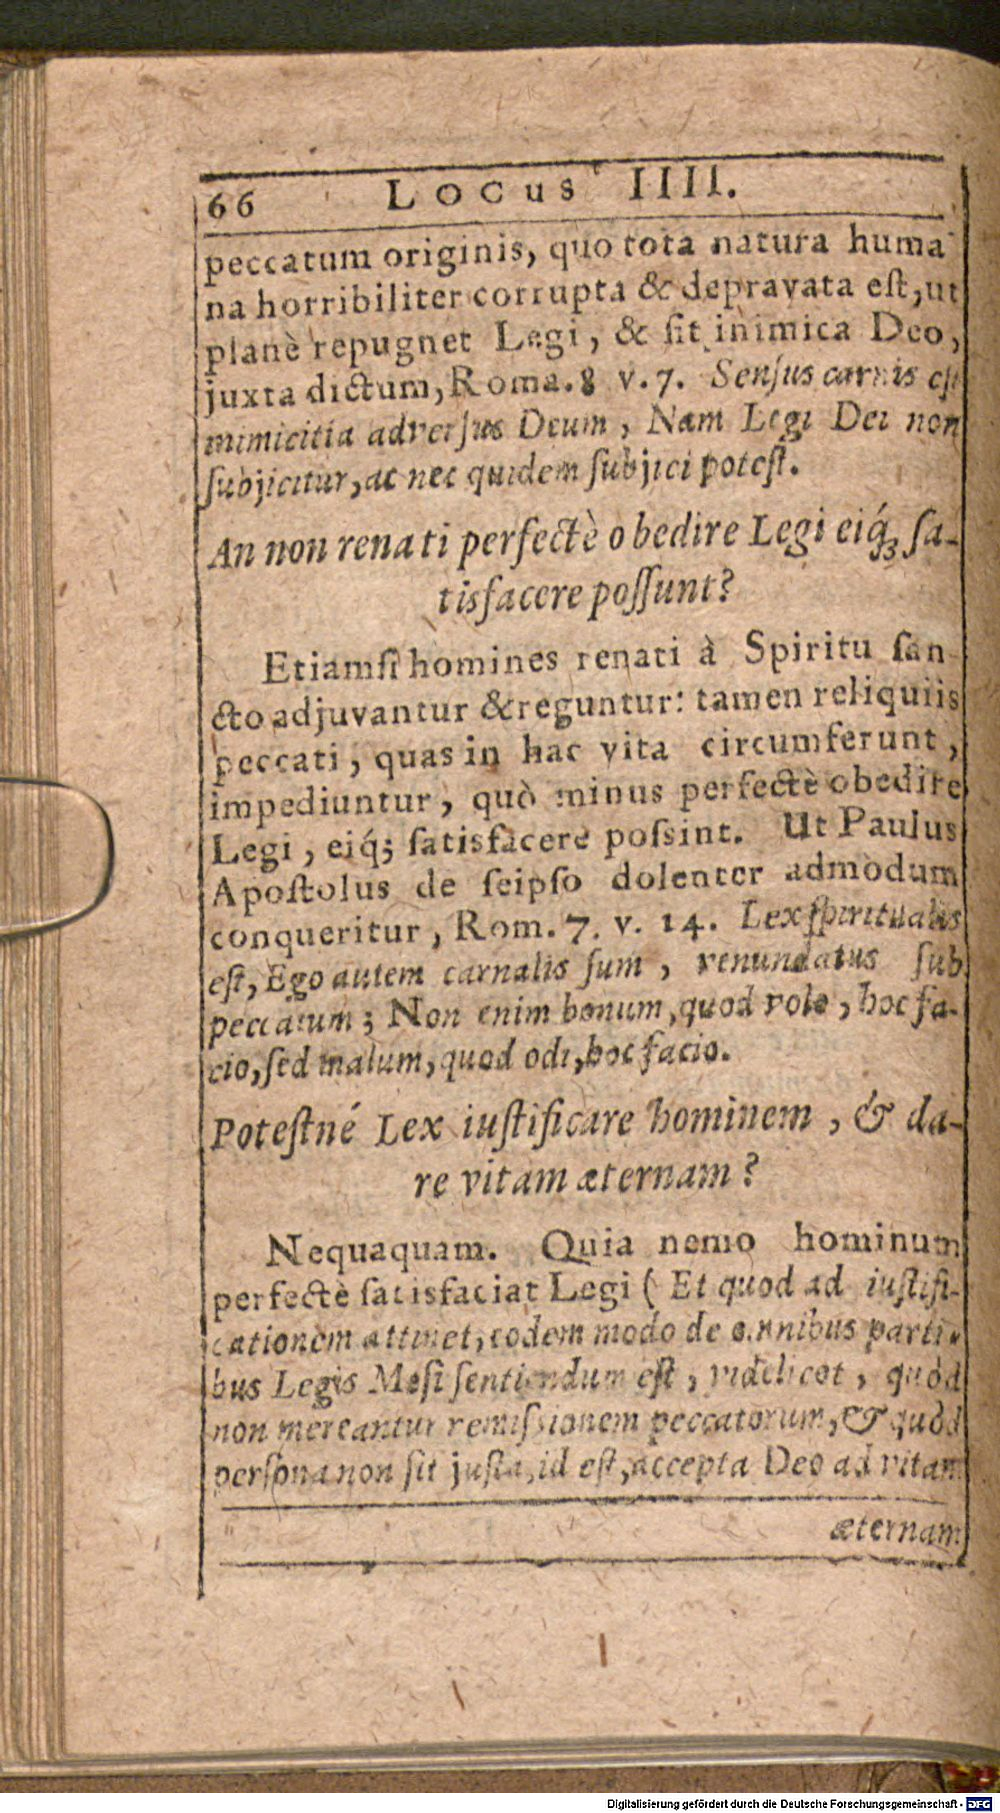 66 Locus IIII.
peccatum originis, quo tota natura huma
na horribiliter corrupta & depravata eſt, ut
planè repugnet Legi, & ſit inimica Deo,
juxta dictum, Roma. 8 v. 7. Senſus carnis eſt
inimicitia adverſus Deum, Nam Legi Dei non
ſubjicitur, ac nec quidem ſubjici poteſt.
An non renati perfectè obedire Legi eiq́ꝫ ſa-
tisfacere poſſunt?
Etiamſi homines renati à Spiritu ſan
cto adjuvantur & reguntur: tamen reliquiis
peccati, quas in hac vita circumferunt,
impediuntur, quò minus perfectè obedire
Legi, eiq́; ſatisfacere poſsint. Ut Paulus
Apoſtolus de ſeipſo dolenter admodum
conqueritur, Rom. 7. v. 14. Lex ſpiritualis
eſt, Ego autem carnalis ſum, venundatus ſub
peccatum; Non enim bonum, quod volo, hoc fa-
cio, ſed malum, quod odi, hoc facio.
Poteſtné Lex iuſtificare hominem, & da-
re vitam æternam?
Nequaquam. Quia nemo hominum
perfectè ſatisfaciat Legi ( Et quod ad iuſtifi-
cationem attinet, eodem modo de omnibus parti-
bus Legis Moſi ſentiendum eſt, videlicet, quòd
non mereantur remiſsionem peccatorum, & quòd
perſona non ſit juſta, id eſt, accepta Deo ad vitam
æternam
Digitalisierung gefördert durch die Deutsche Forschungsgemeinschaft - DFG